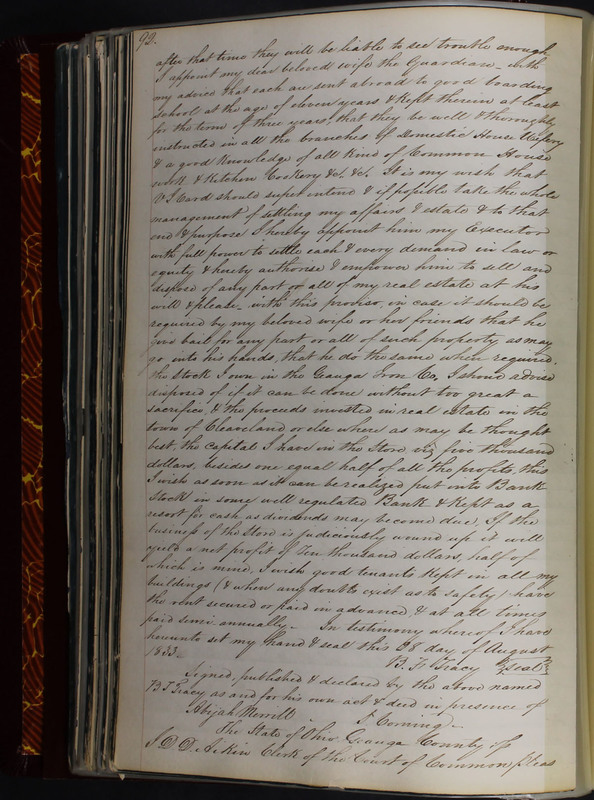 92.
after that time they will be liable to see trouble enough
I appoint my dear beloved wife the Guardian – with
my advice that each are sent abroad to good boarding
school at the age of eleven years & kept therein at least
for the term of three years, that they be well & thoroughly
instructed in all the branches of Domestic House Wifery
& a good knowledge of all kind of Common House
work & Kitchen Cookery &c. &c. It is my wish that
V I Card should superintend & if possible take the whole
management of settling my affairs & estate & to that
end & purpose I hereby appoint him my Executor
with full power to settle each & every demand in law or
equity & hereby authorise & empower him to sell and
dispose of any part or all of my real estate at his
will & please – with this proviso, in case it should be
required by my beloved wife or her friends that he
give bail for any part or all of such property as may
go into his hands, that he do the same when required.
the Stock I own in the Geauga Iron Co. I should advise
disposed of if it can be done without too great a
sacrifice, & the proceeds invested in real estate in the
town of Cleaveland or else where as may be thought
best, the capital I have in the Store viz five thousand
dollars, besides one equal half of all the profits, this
I wish as soon as it can be realized put into Bank
Stock in some well regulated Bank & kept as a
resort for cash as dividends may become due, If the
business of the Store is judiciously wound up it will
yield a net profit of Ten thousand dollars, half of
which is mine, I wish good tenants kept in all my
buildings (& when any doubts exist as to safety) have
the rent secured or paid in advanced, & at all times
paid semi annually – In testimony whereof I have
hereunto set my hand & seal this 28 day of August
1833 –
B. F. Tracy Seal
Signed, published & declared by the above named
B F Tracy as and for his own act & deed in presence of
Abijah Merrill – J. Corning –
The State of Ohio Geauga County ss
I D. D. Aikin Clerk of the Court of Common pleas